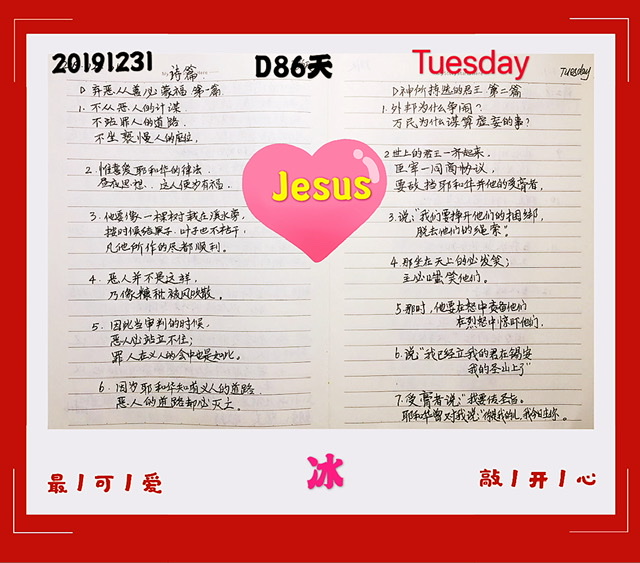 20191231
D86天
Tuesday
诗篇
Tuesday
弃恶从善必蒙福 第一篇
1. 不从恶人的计谋
不站罪人的道路
不坐亵慢人的座位,
2. 惟喜爱耶和华的律法
昼夜思想. 这人便为有福.
3. 他要像一棵树栽在溪水旁,
按时候结果子. 叶子也不枯干;
凡他所作的尽都顺利.
4. 恶人并不是这样,
乃像糠秕被风吹散.
5. 因此当审判的时候,
恶人必站立不住;
罪人在义人的会中也是如此.
6. 因为耶和华知道义人的道路
恶人的道路却必灭亡.
Jesus
神所拣选的君王 第二篇
1. 外邦为什么争闹?
万民为什么谋算虚妄的事?
2 世上的君王一齐起来.
臣宰一同商议,
要敌挡耶和华并他的受膏者,
3. 说:"我们要挣开他们的捆绑,
脱去他们的绳索".
4. 那坐在天上的必发笑;
主必嗤笑他们.
5. 那时, 他要在怒中责备他们
在烈怒中惊吓他们.
6. 说"我已经立我的君在锡安
我的圣山上了"
7. 受膏者说:"我要传圣旨.
耶和华曾对我说:"你是我的儿, 我今日生你.
最 / 可 / 爱
冰
敲 / 开 / 心